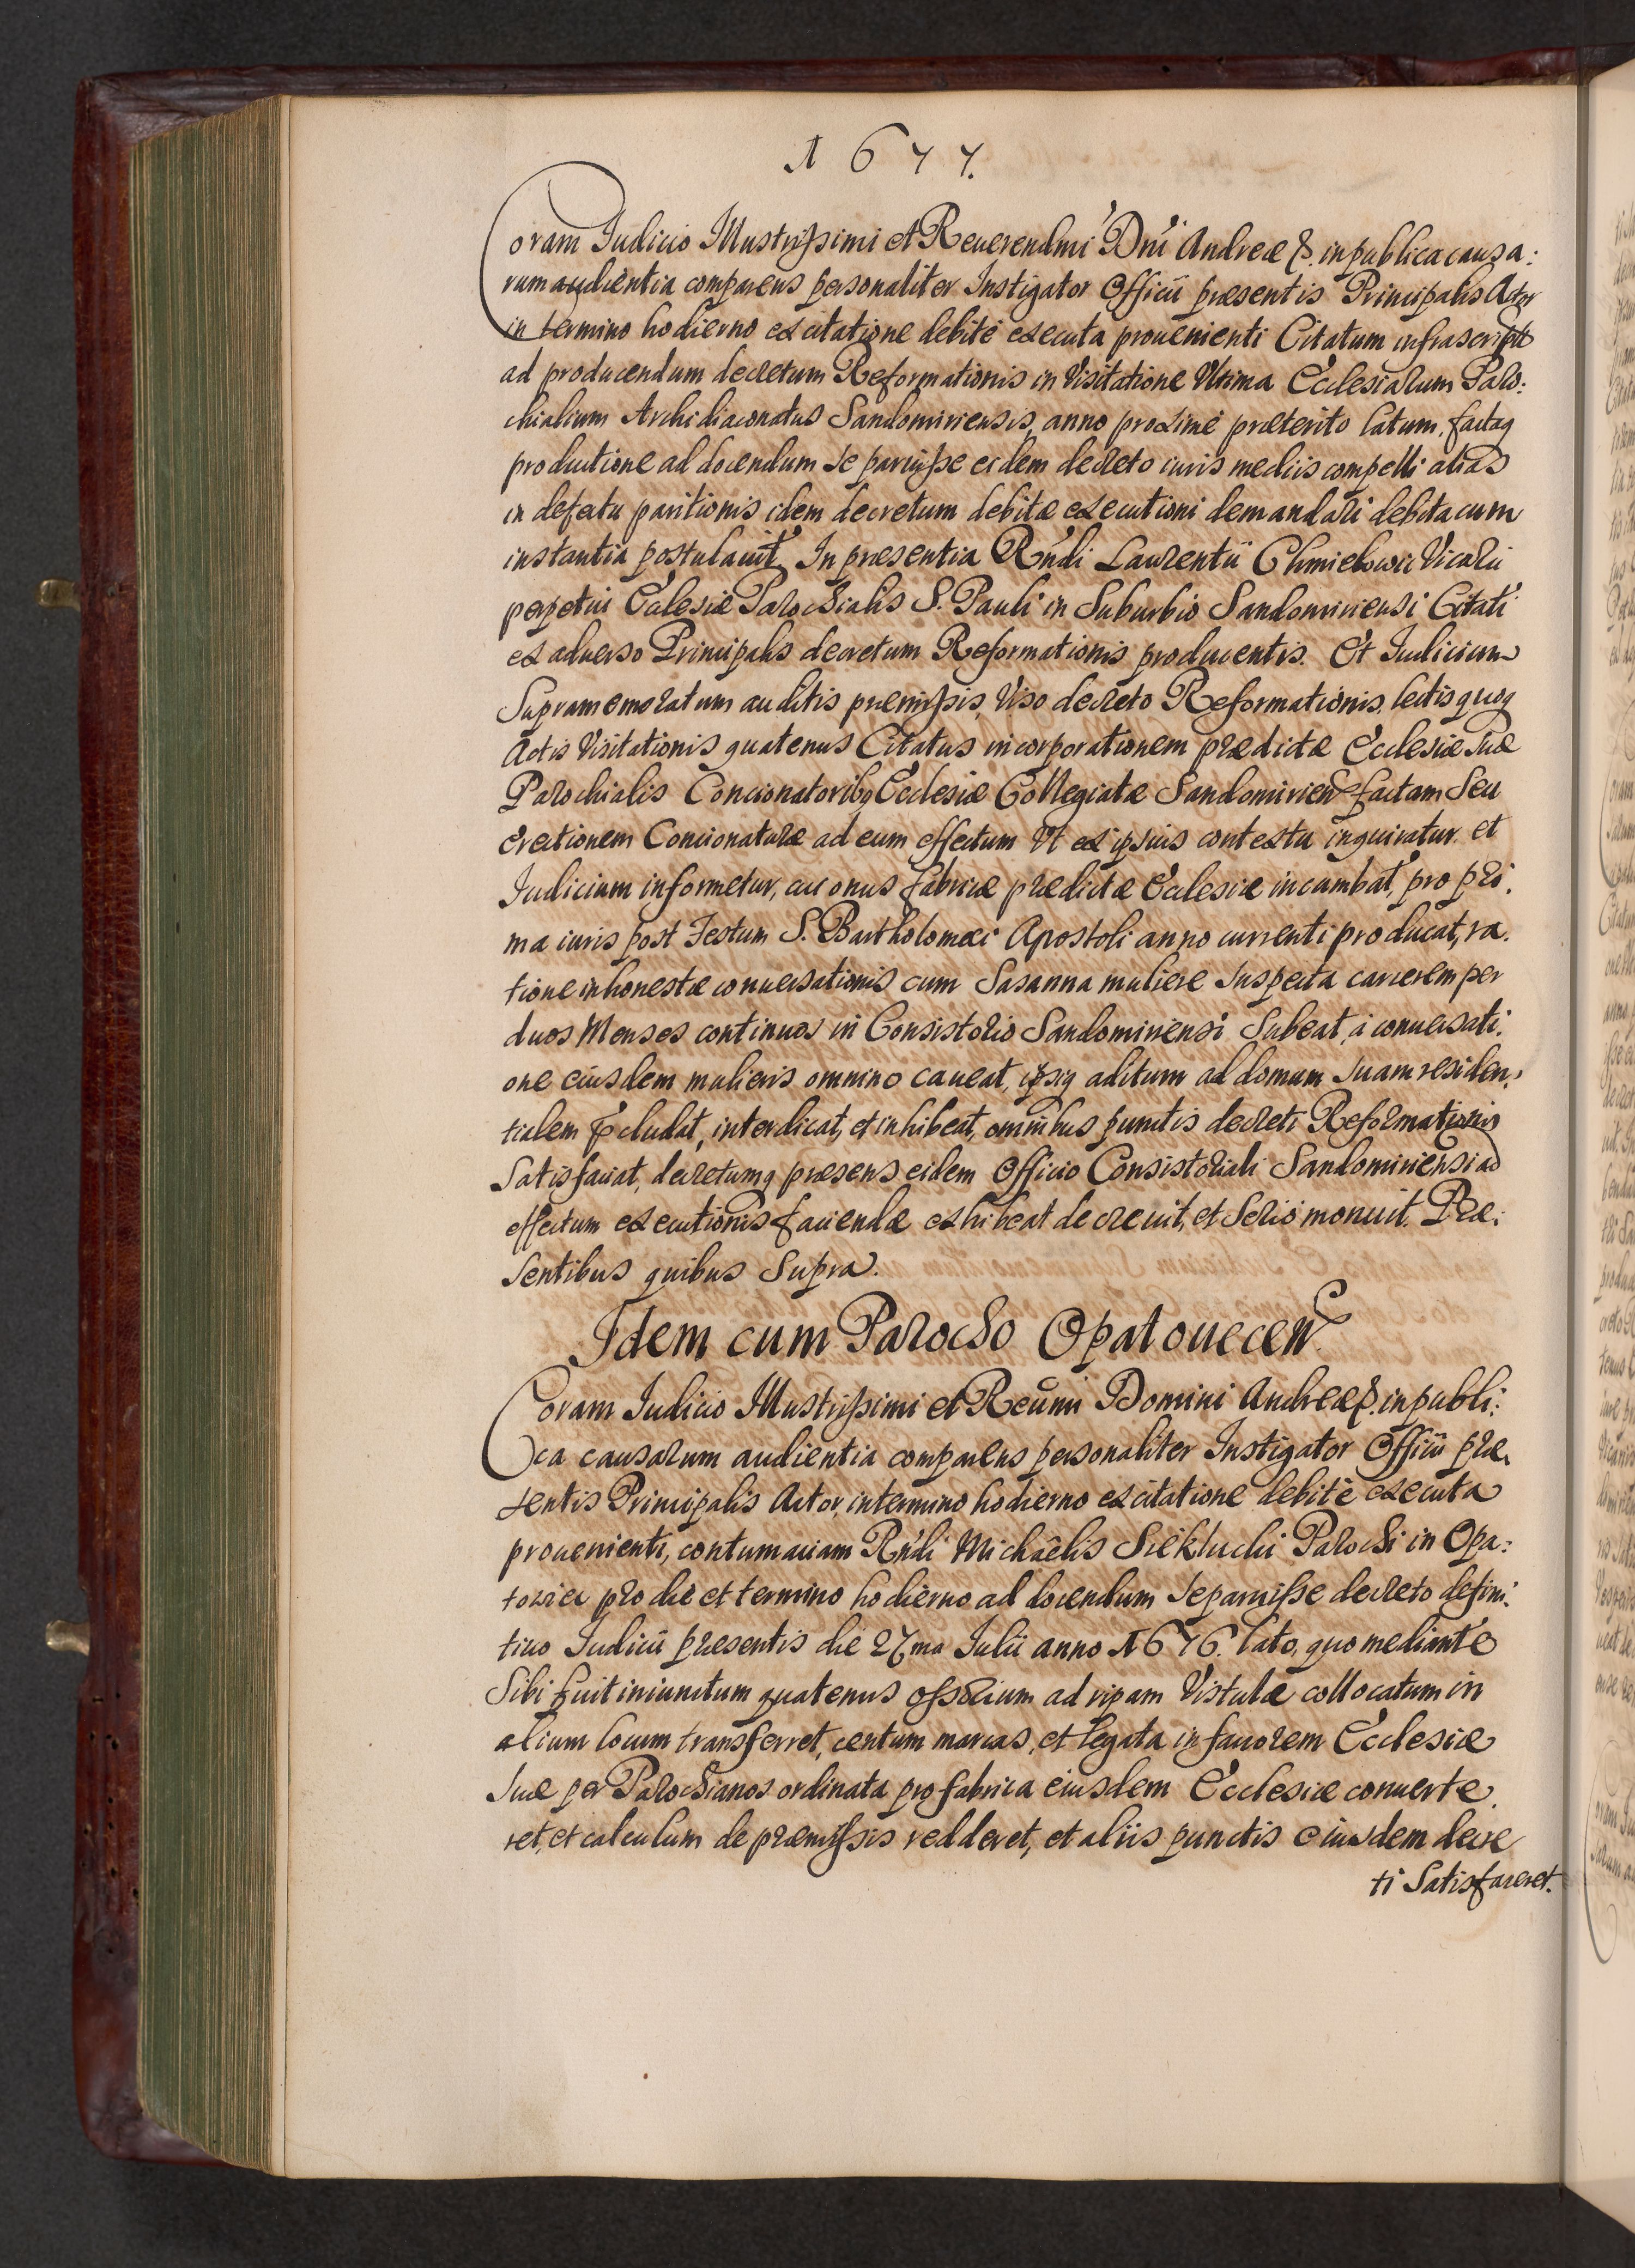 1677.
Coram Iudicio Illustrissimi et Reuerendmi Dni Andreæ &. in publica causa:
rum audientia comparens personaliter Instigator Officii præsentis Principalis Actor
in termino hodierno ex citatione debitè executa prouenienti Citatum infrascript
ad producendum decretum Reformationis in Visitatione Vltima Ecclesiarum Paro:
chialium Archidiaconatus Sandomiriensis, anno proximè præterito latum, factaq
productione ad docendum se paruisse eidem decreto iuris mediis compelli alias
in defectu paritionis idem decretum debitæ executioni demandari debita cum
instantia postulauit. In præsentia Rndi Laurentii Chmielowic Vicarii
perpetui Ecclesiæ Parochialis S. Pauli in Suburbio Sandomiriensi Citati
ex aduerso Principalis decretum Reformationis producentis. Et Iudicium
Supramemoratum auditis præmissis, Viso decreto Reformationis, lectis quoq
Actis Visitationis quatenus Citatus incorporationem prædictæ Ecclesiæ suæ
Parochialis Concionatoribq Ecclesiæ Collegiatæ Sandomirien factam seu
erectionem Concionaturæ ad eum effectum Vt ex ipsius contextu inquiratur et
Iudicium informetur, cui onus fabricæ prædictæ Ecclesiæ incumbat, pro pri:
ma iuris post Festum S. Bartholomæi Apostoli anno currenti producat, ra.
tione inhonestæ conuersationis cum Sasanna muliere suspecta carcerem per
duos Menses continuos in Consistorio Sandomiriensi Subeat, à conuersati:
one eiusdem mulieris omnino caueat, ipsiq aditum ad domum suam residen:
tialem præcludat, interdicat, et inhibeat, omnibus punctis decreti Reformationis
Satisfaciat, decretumq præsens eidem Officio Consistoriali Sandomiriensi ad
effectum executionis faciendæ exhibeat decreuit, et Seriò monuit. Præ:
sentibus quibus Supra.
Idem cum Parocho Opatouecen
Coram Iudicio Illustrissimi et Reumi Domini Andreæ &. in publi:
ca causarum audientia comparens personaliter Instigator Officii præ:
sentis Principalis Actor, in termino hodierno ex citatione debitè executa
prouenienti, contumaciam Rndi Michaëlis Siekluclii Parochi in Opa:
towiec pro die et termino hodierno ad docendum se paruisse decreto defini:
tiuo Iudicii præsentis die 27ma Iulii anno 1676. lato, quo mediante
Sibi fuit iniunctum quatenus ossorium ad ripam Vistulæ collocatum in
alium locum transferret, centum marcas, et legata in fauorem Ecclesiæ
suæ per Parochianos ordinata pro fabrica eiusdem Ecclesiæ conuerte:
ret, et calculum de præmissis redderet, et aliis punctis eiusdem decre
ti Satisfaceret.